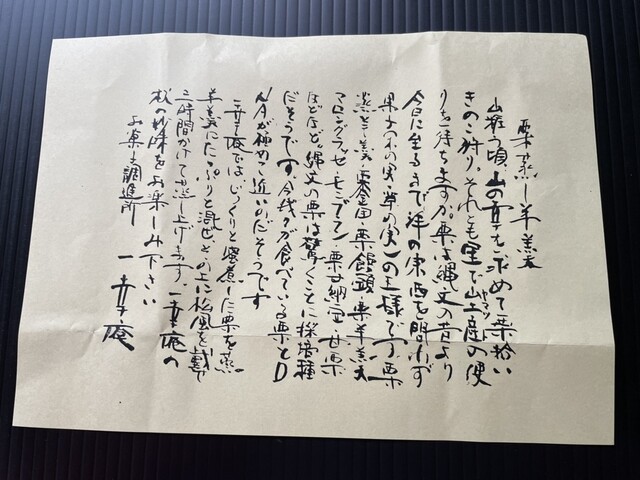 栗蒸し羊羹
山粧う頃山の幸を求めて栗拾い
きのこ狩り。それとも里で山土産の便
りを待ちますか。栗は縄文の昔より
今日に至るまで洋の東西を問わず
果子(木の実・草の実)の王様です。栗
蒸し羊羹・栗金団・栗饅頭・栗羊羹
マロングラッセ・モンブラン・栗甘納豆・甘栗
ほどほど。縄文の栗は驚くことに栽培種
だそうです。今我々が食べている栗とD
NAが極めて近いのだそうです
一幸庵ではじっくりと蜜煮した栗を蒸し
羊羹にたっぷりと混ぜ、その上に松風を載せ
二時間かけて蒸し上げます。一幸庵の
秋の妙味をお楽しみ下さい
お菓子調進所 一幸庵